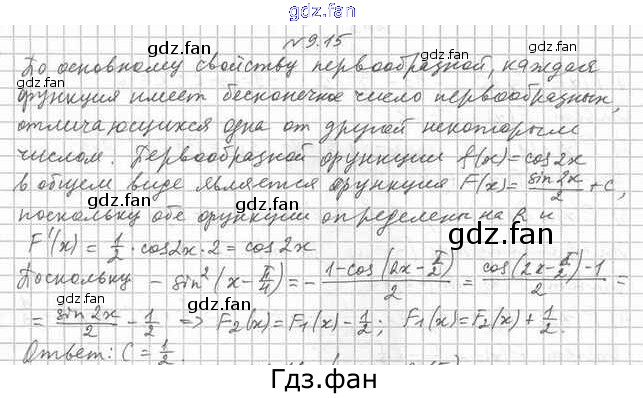 gdz.fan
№9.15
gdz.fan gdz.fan
По основному свойству первообразной, каждая
функция имеет бесконечное число первообразных,
gdz.fan gdz.fan
отличающихся одна от другой некоторым
числом. Первообразной функции f(x)=cos2x
в общем виде является функция F(x)=sin2x/2+C,
gdz.fan gdz.fan
поскольку обе функции определены на R и
F'(x)=1/2·cos2x·2=cos2x
gdz.fan gdz.fan
Поскольку -sin²(x-π/4)=-(1-cos(2x-π/2))/2=(cos(2x-π/2)-1)/2=
gdz.fan gdz.fan
=sin2x/2-1/2 => F₂(x)=F₁(x)-1/2; F₁(x)=F₂(x)+1/2.
Ответ: C=1/2.
Гдз.фан